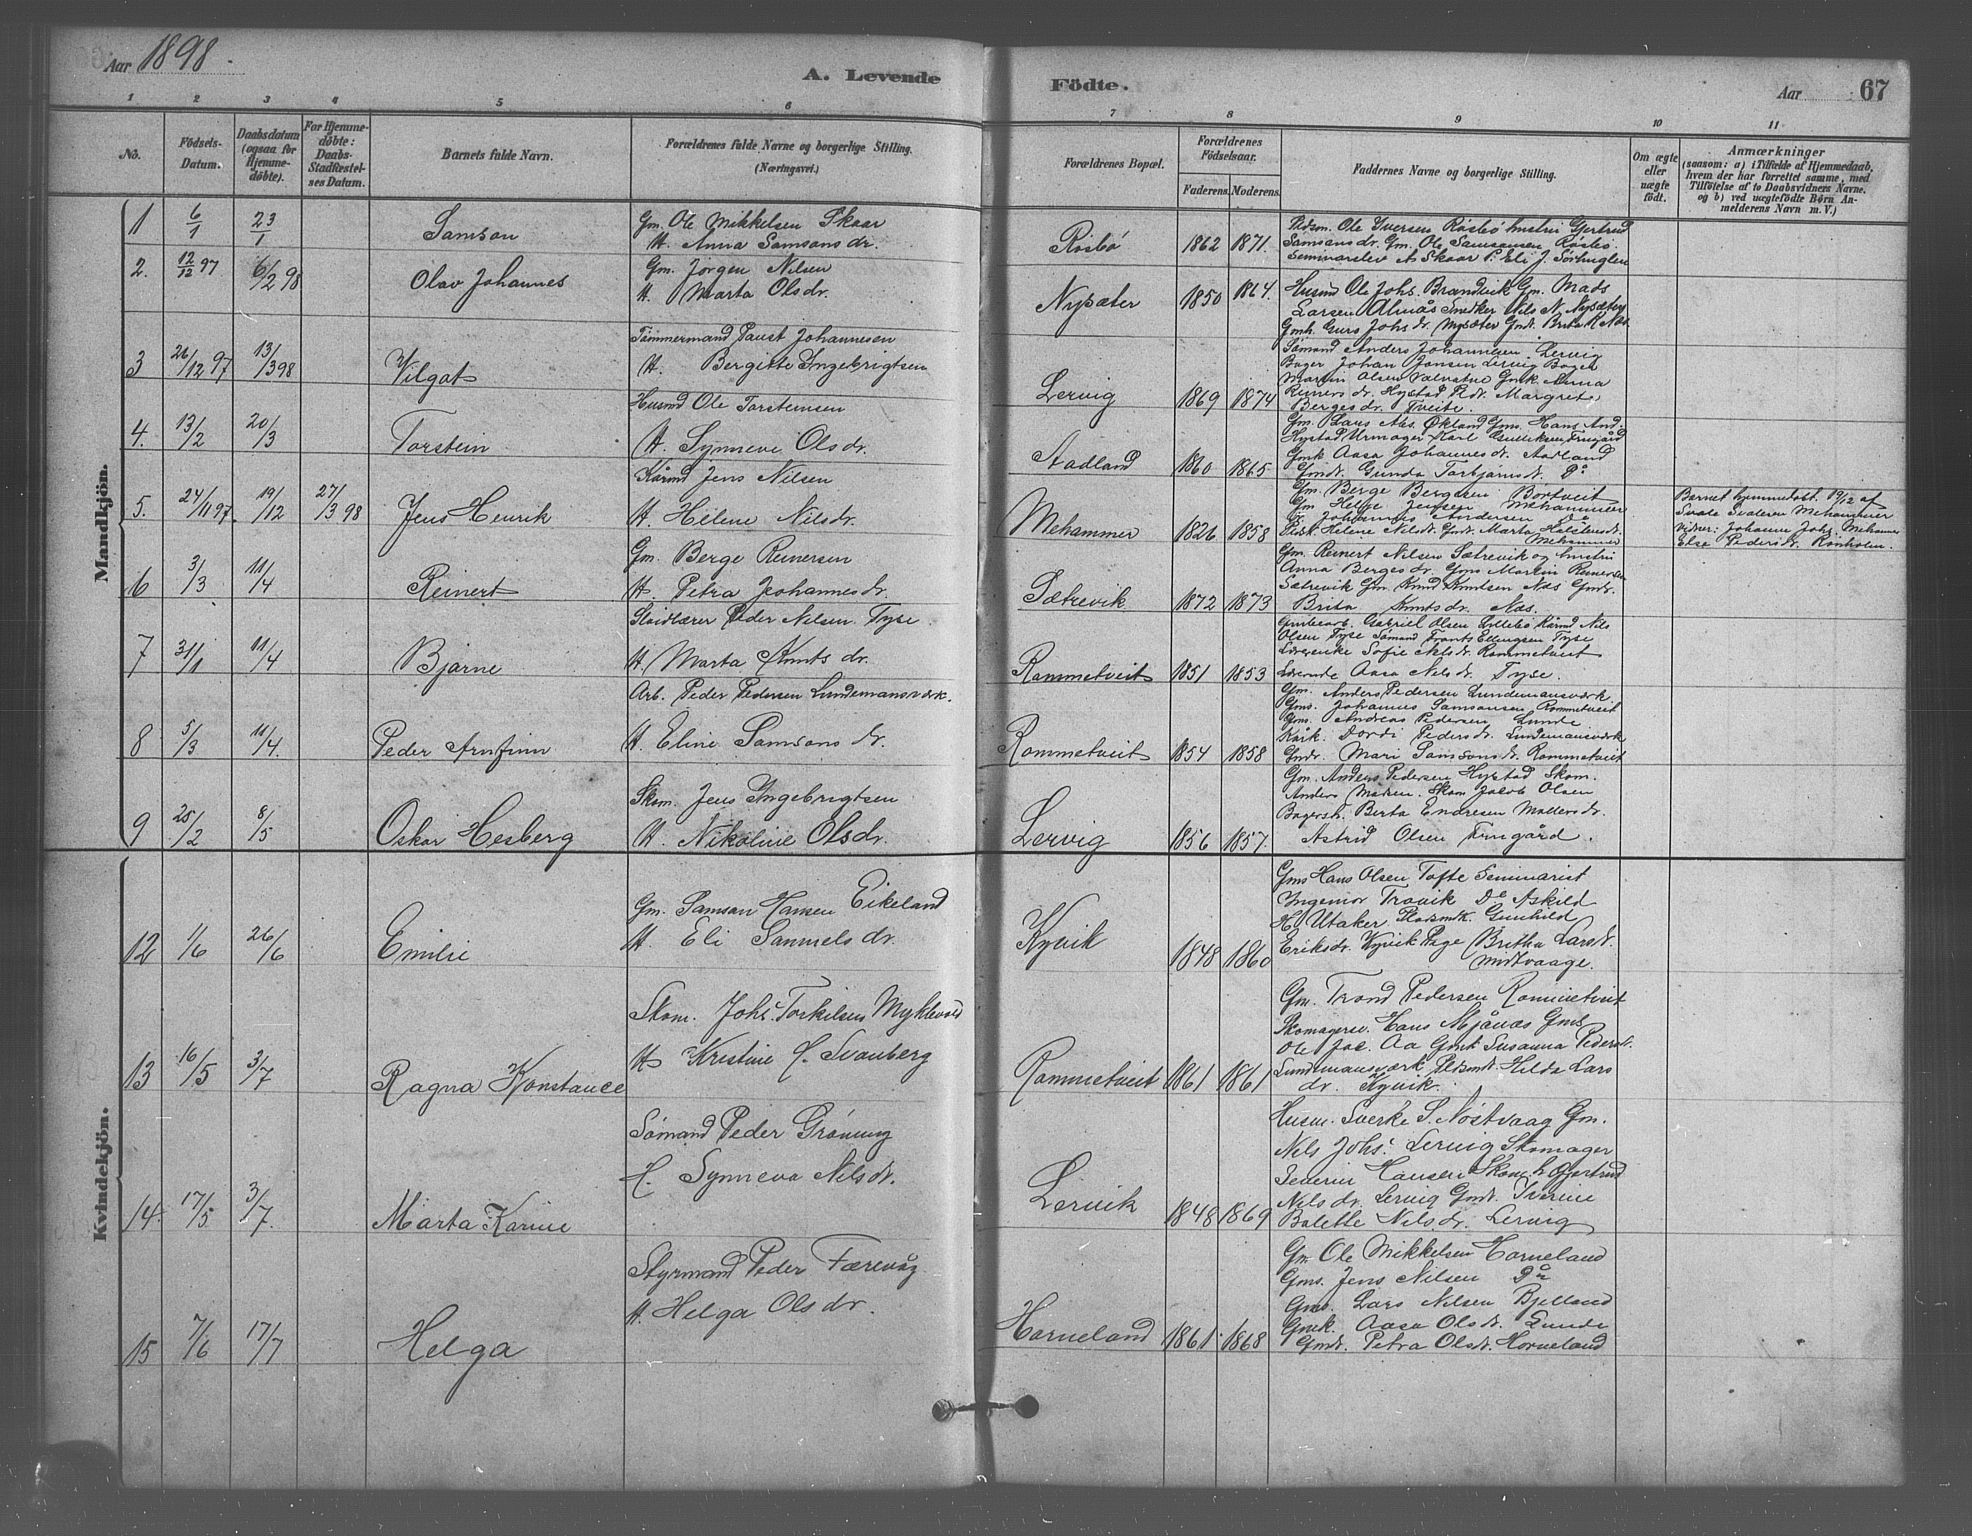 Aar 1898.
A. Levende
Födte.
Aar
67
1 2 3 4 5 6 7 8 9 10 11
No.
Födsels-
Datum.
Daabsdatum
(ogsaa for
Hjemme-
döbte).
For Hjemme-
döbte:
Daabs-
Stadfæstel-
ses Datum.
Barnets fulde Navn.
Forældrenes fulde Navne og borgerlige Stilling.
(Næringsvei.)
Forældrenes Bopæl.
Forældrenes
Födselsaar.
Faderens. Moderens.
Faddernes Navne og borgerlige Stilling.
Om ægte
eller
uægte
födt.
Anmærkninger
(saasom: a) i Tilfælde af Hjemmedaab,
hvem der har forrettet samme, med
Tilföielse af to Daabsvidners Navne.
og b) ved uægtefödte Börn An-
melderens Navn m. V.)
Mandkjön.
1 6/1 23/1 Samson
Gm. Ole Mikkelsen Skaar
H. Anna Samsonsdr.
Rösbö 1862 1871.
Pldsm. Ole Iversen Rösbö hustru Gjertrud
Samsonsdr. Gm. Ole Samsonsen Rösbö
A Skaar P. Eli J.
2. 12/12 97 6/2 98 Olav Johannes
Gm. Jörgen Nilsen
H. Marta Olsdr.
Nysæter 1850 1864.
Husmd Ole Johs. Brandvik Gm. Mads
Larsen Almås Snedker Nils N. Nysæter
Gmh. Guro Johsdr. Nysæter Gmdt. Brita K. Næs
3 26/12 97 13/3 98 Vilgat
Tömmermand Faust Johannesen
H. Bergitte Ingebrigtsen
Lervig 1869 1874
Sömand Anders Johannesen Lervig
Bager Johan Jansen Lervig Bager
Martin Olsen Valvatne Gmk. Anna
Reinersdr. Hystad Pldr. Margrete
Bergesdr. Tveite.
4. 13/2 20/3 Torstein
Husmd Ole Torsteinsen
H. Synneve Olsdr.
Aadland 1860 1865
Gm. Claus Als. Økland Gms. Hans And.
Hystad Urmager Karl Gulliksen Frugård
Gmk Aasa Johannesdr. Aadland
Gmdt. Gunda Torbjörnsdr. Do
5. 24/11 97. 19/12 27/3 98 Jens Henrik
Kårmd Jens Nilsen
H. Helene Nilsdr.
Mehammer 1826 1858
Gm. Berge Bergesen Bortveit
Gm Helge Jensen Mehammer
Johannes Andersen Do
Helene Nilsdr. Gmdt. Marta Halstensdr.
Mehammer
Barnet hjemmedöbt 19/12 af
Svale Svalesen Mehammer
Vidner: Johanne Johs. Mehammer
Else Pedersdr. Rönholm.
6 3/3 11/4 Reinert
Gm. Berge Reinersen
H. Petra Johannesdr.
Sætrevik 1872 1873
Gm. Reinert Nilsen Sætrevik og hustru
Anna Bergesdr. Gms Martin Reinersen
Sætrevik Gm. Knud Knudsen Næs Gmdr.
Brita Knutsdr. Næs.
7 31/1 11/4 Bjarne
Sloidlærer Peder Nilsen Tyse.
H. Marta Knutsdr.
Rommetveit 1851 1853
Grubearb. Gabriel Olsen Lillebö Kårmd Nils
Olsen Tyse Sömand Frants Ellingsen Tyse
Lærerenke Sofie Nilsdr. Rommetveit
Aasa Nilsdr. Tyse.
8 5/3 11/4. Peder Arnfinn
Arb. Peder Pedersen Lundemansværk.
H. Eline Samsonsdr.
Rommetveit 1854 1858
Gm. Anders Pedersen Lundemansværk
Gms. Johannes Samsonsen Rommetveit
Gms. Andreas Pedersen Lunde
Kårk. Dordi Pedersdr. Lundemansværk
Gmdr. Mari Samsonsdr. Rommetveit
9 25/2 8/5 Oskar Hesberg
Skom. Jens Ingebrigtsen
H. Nikoline Olsdr.
Lervig 1856 1857.
Gm. Anders Pedersen Hystad Skom.
Anders Madsen. Skom Jacob Olsen
Bagersk. Berta Endresen Mallersdr.
Astrid Olsen Frugård.
Kvindekjön.
12 1/6 26/6 Emilie
Gm. Samson Hansen Eikeland
H. Eli Samuelsdr.
Kyvik 1848 1860
Gms Hans Olsen Tofte Seminarist
Ingeniör Trovik Do Askild
H. Utaker Pladsmk. Gunhild
Eriksdr. Kyvik Pige Britha Larsdr.
Midtvaage.
13 16/5 3/7 Ragna Konstance
Skom. Johs. Torkilsen Myklevold
H Kristine H. Svanberg
Rommetveit 1861 1861
Gm. Trond Pedersen Rommetveit
Skomagersv. Hans Mjånæs Gms
Ole Jac. Aa Gmk Susanna Pedersdr.
Lundemansværk Pldsmdt. Hilda Lars
dr. Kyvik.
14. 17/5 3/7. Marta Karine
Sömand Peder Gröning
H. Synneva Nilsdr.
Lervik 1848 1869
Husm. Sverke S. Nöstvaag Gm.
Nils Johs. Lervig Skomager
Severin Hansen Skom. h. Gjertrud
Nilsdr. Lervig Gmdt. Iverine
Bolette Nilsdr. Lervig
15 7/6 17/7 Helga
Styrmand Peder Færevåg
H Helga Olsdr.
Horneland 1861. 1868
Gm. Ole Mikkelsen Horneland
Gms. Jens Nilsen Do
Gms. Lars Nilsen Bjelland
Gmk. Aasa Olsdr. Lunde
Gmdt. Petra Olsdr. Horneland